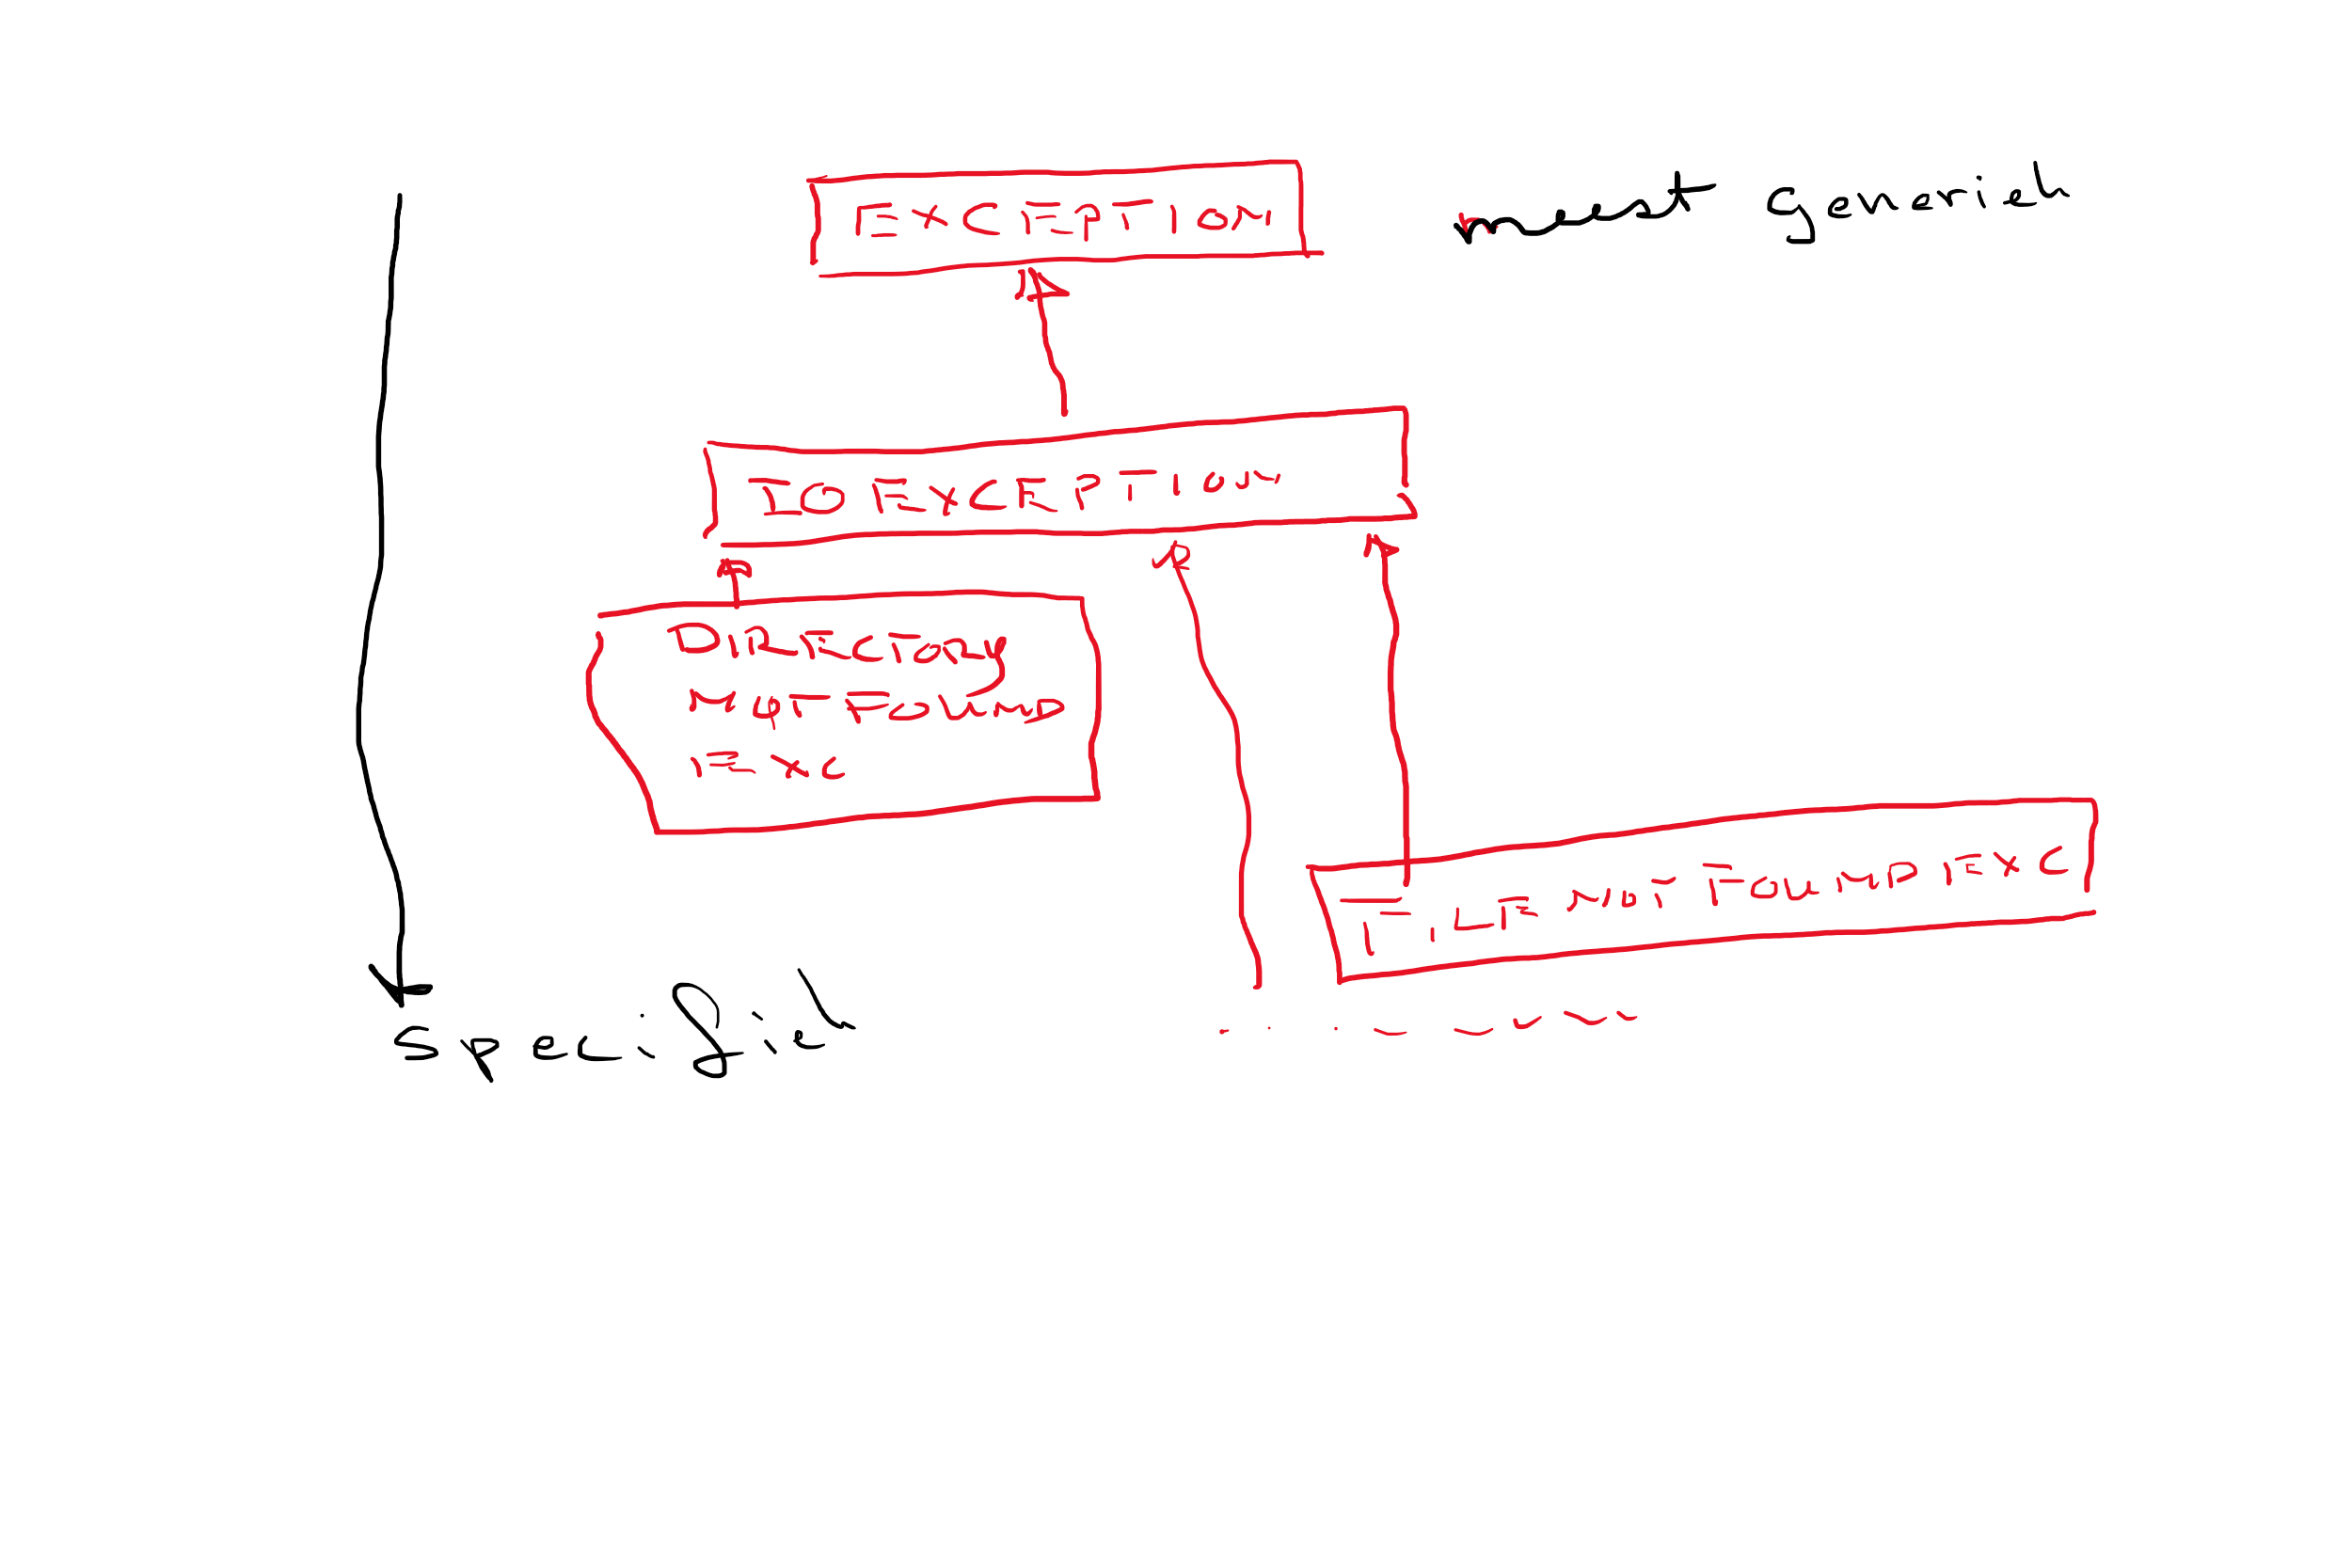 EXCEPTION
meest generiek
IOEXCEPTION
DIRECTORy
NOTFOUND
EXC
FILENOTFOUNDEXC
specifiek